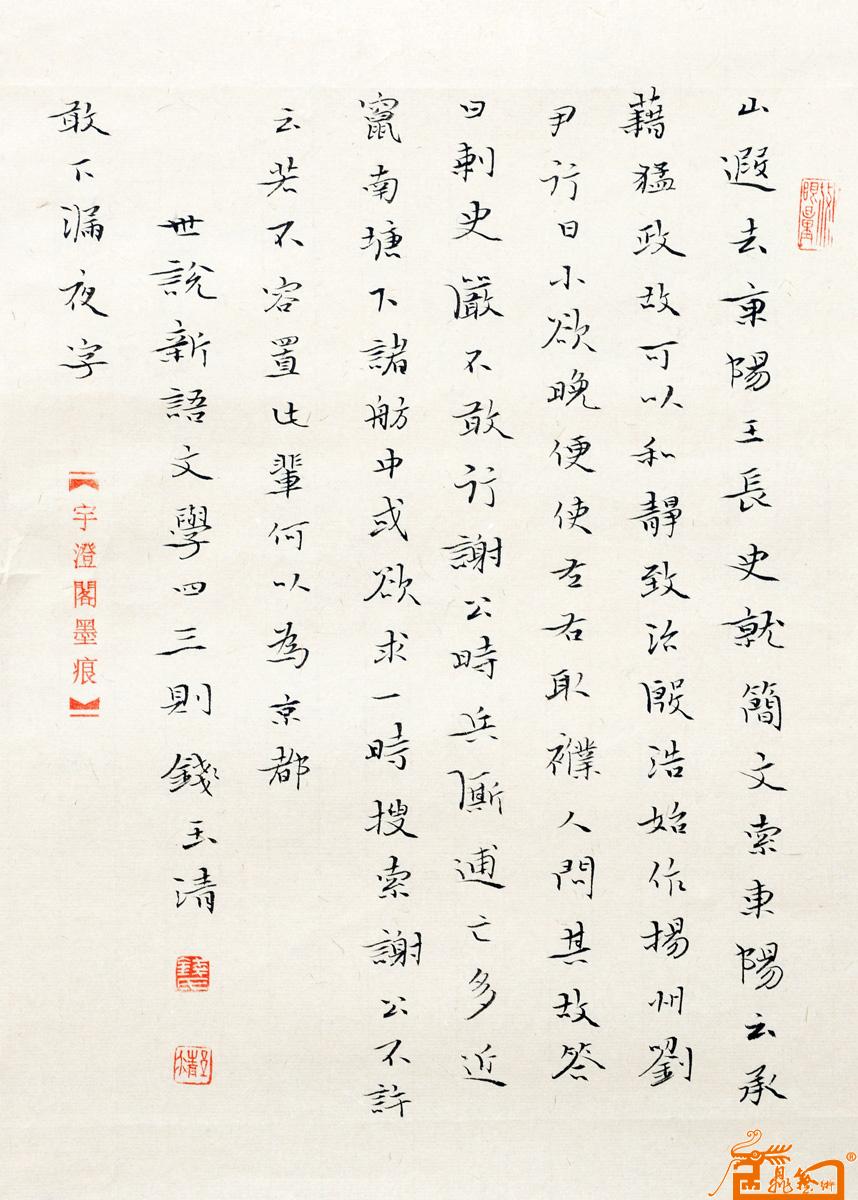 山遐去東陽王長史就簡文索東陽云承
藉猛政故可以和靜致治殷浩始作揚州劉
尹行日小欲晚便使左右取襆人問其故答
曰刺史嚴不敢行謝公時兵廝逋亡多近
竄南塘下諸舫中或欲求一時搜索謝公不許
云若不容置此輩何以為京都
世說新語文學四三則 錢玉清
敢下漏夜字
【宇澄閣墨痕】